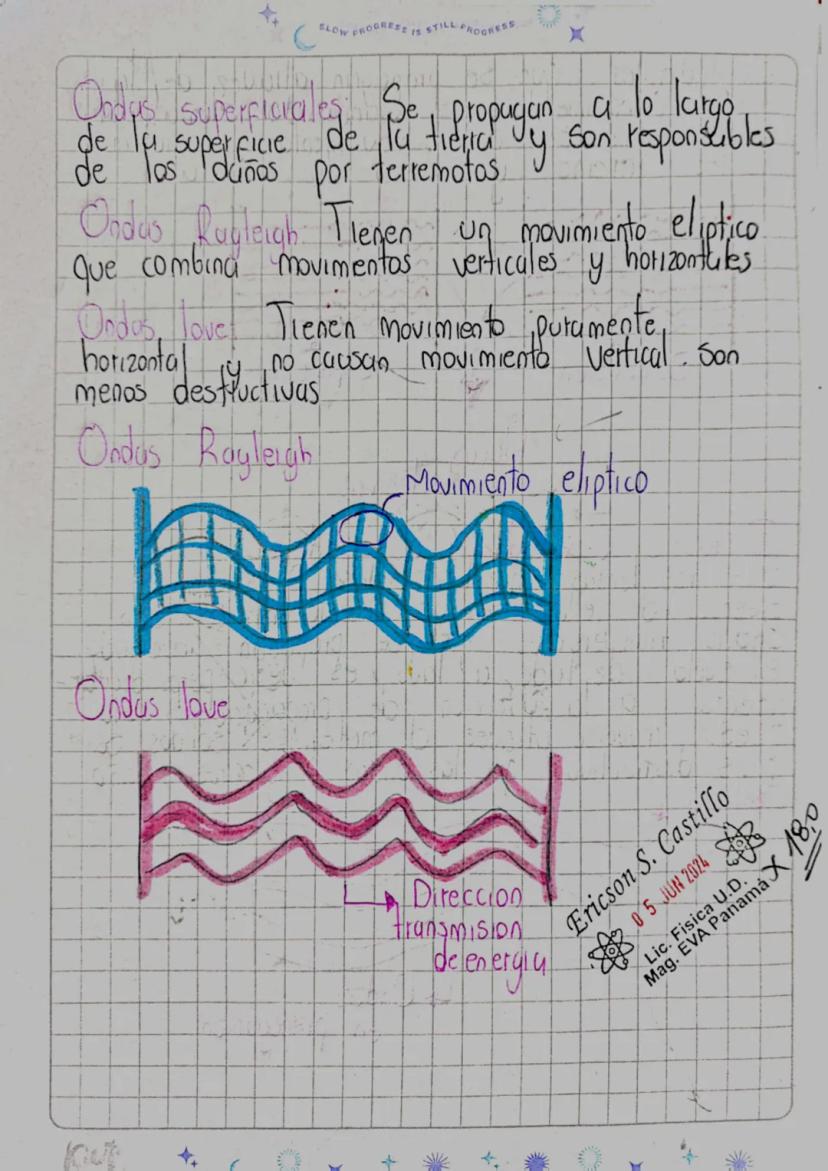 SLOW PROGRESS IS STILL PROGRESS
Ondas superficiales: Se propagan a lo largo
de la superficie de la tierra y son responsables
de los daños por terremotos
Ondas Rayleigh Tienen un movimiento eliptico
que combina movimentos verticales y horizontales
Ondas love: Tienen movimiento puramente
horizontal y no causan movimiento vertical. Son
menos destructivas
Ondas Rayleigh
Movimiento eliptico
Ondas love
Direccion
transmision
de energia
Ericson S. Castillo
05 JUN 2024
Lic. Fisica U.D.
Mag. EVA Panamá
18.0